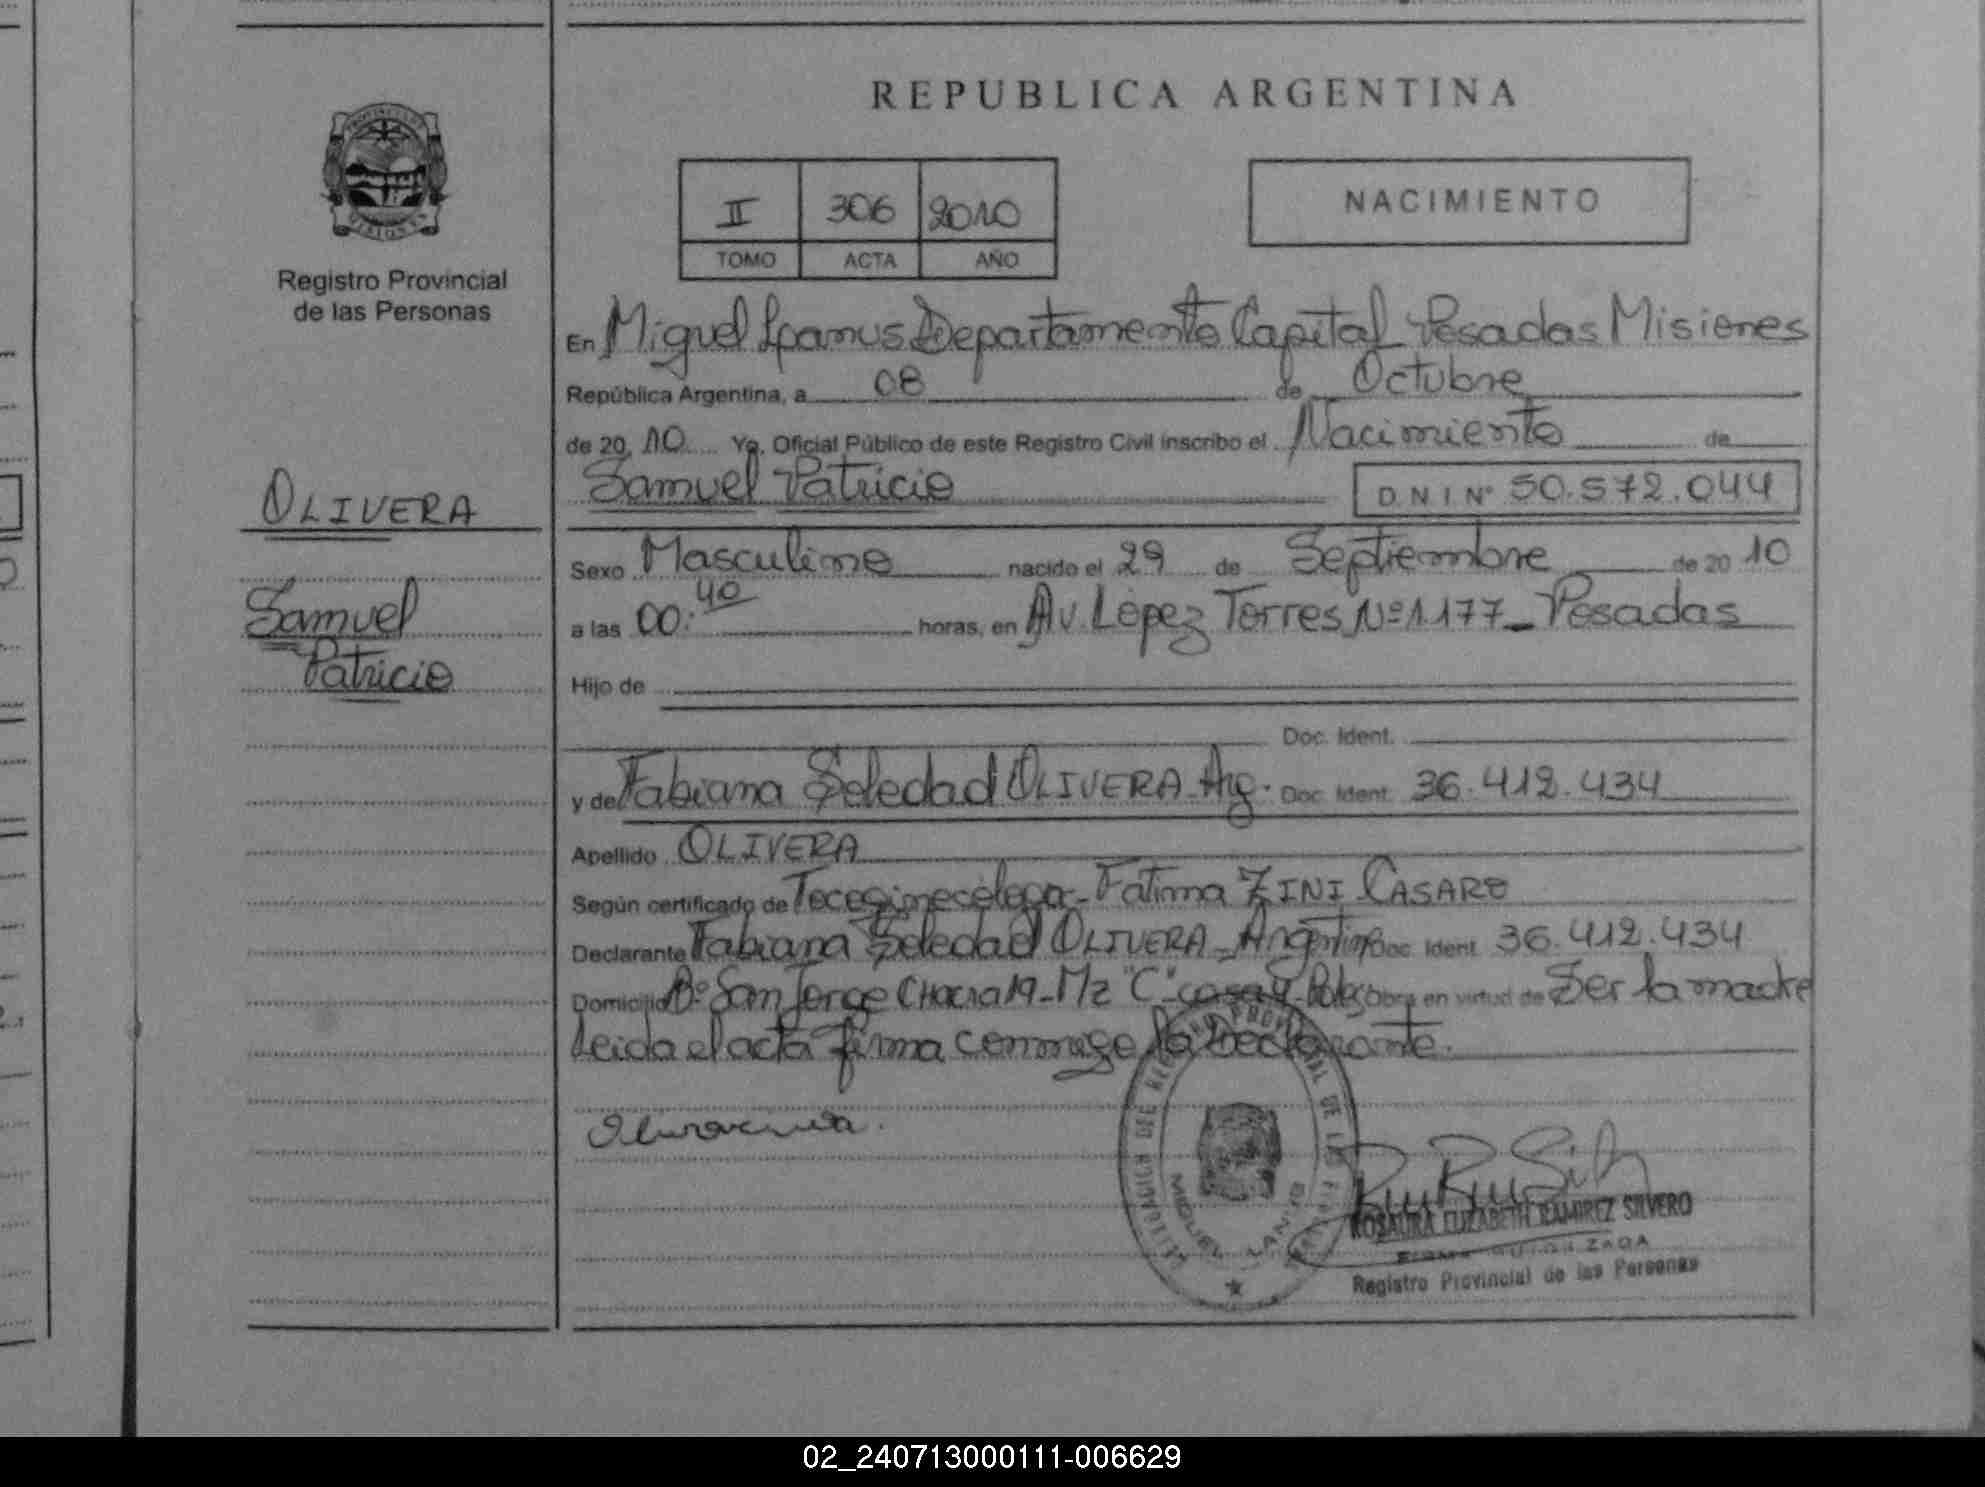 REPUBLICA ARGENTINA
PROVINCIA DE
MISIONES
Registro Provincial
de las Personas
II 306 2010
TOMO ACTA AÑO
NACIMIENTO
En Miguel Lanus Departamento Capital Posadas Misiones
República Argentina, a 08 de Octubre
de 20 10 Yo, Oficial Público de este Registro Civil inscribo el Nacimiento de
Samuel Patricio D.N.I Nº 50.572.044
OLIVERA
Samuel
Patricio
Sexo Masculino nacido el 29 de Septiembre de 20 10
a las 00:40 horas, en Av. López Torres Nº 1.177 - Posadas
Hijo de
Doc. Ident.
y de Fabiana Soledad OLIVERA Arg. Doc. Ident. 36.412.434
Apellido OLIVERA
Según certificado de Tocoginecóloga - Fatima ZINI CASARO
Declarante Fabiana Soledad OLIVERA - Argentina Doc. Ident. 36.412.434
Domicilio Bº San Jorge Chacra 19 - Mz "C" - casa Obra en virtud de Ser la madre
Leida el acta firma conmigo la Declarante.
REGISTRO PROVINCIAL DE LAS
MIGUEL LANUS
ROSAURA ELIZABETH RAMIREZ SILVERO
FIRMA AUTORIZADA
Registro Provincial de las Personas
02_240713000111-006629